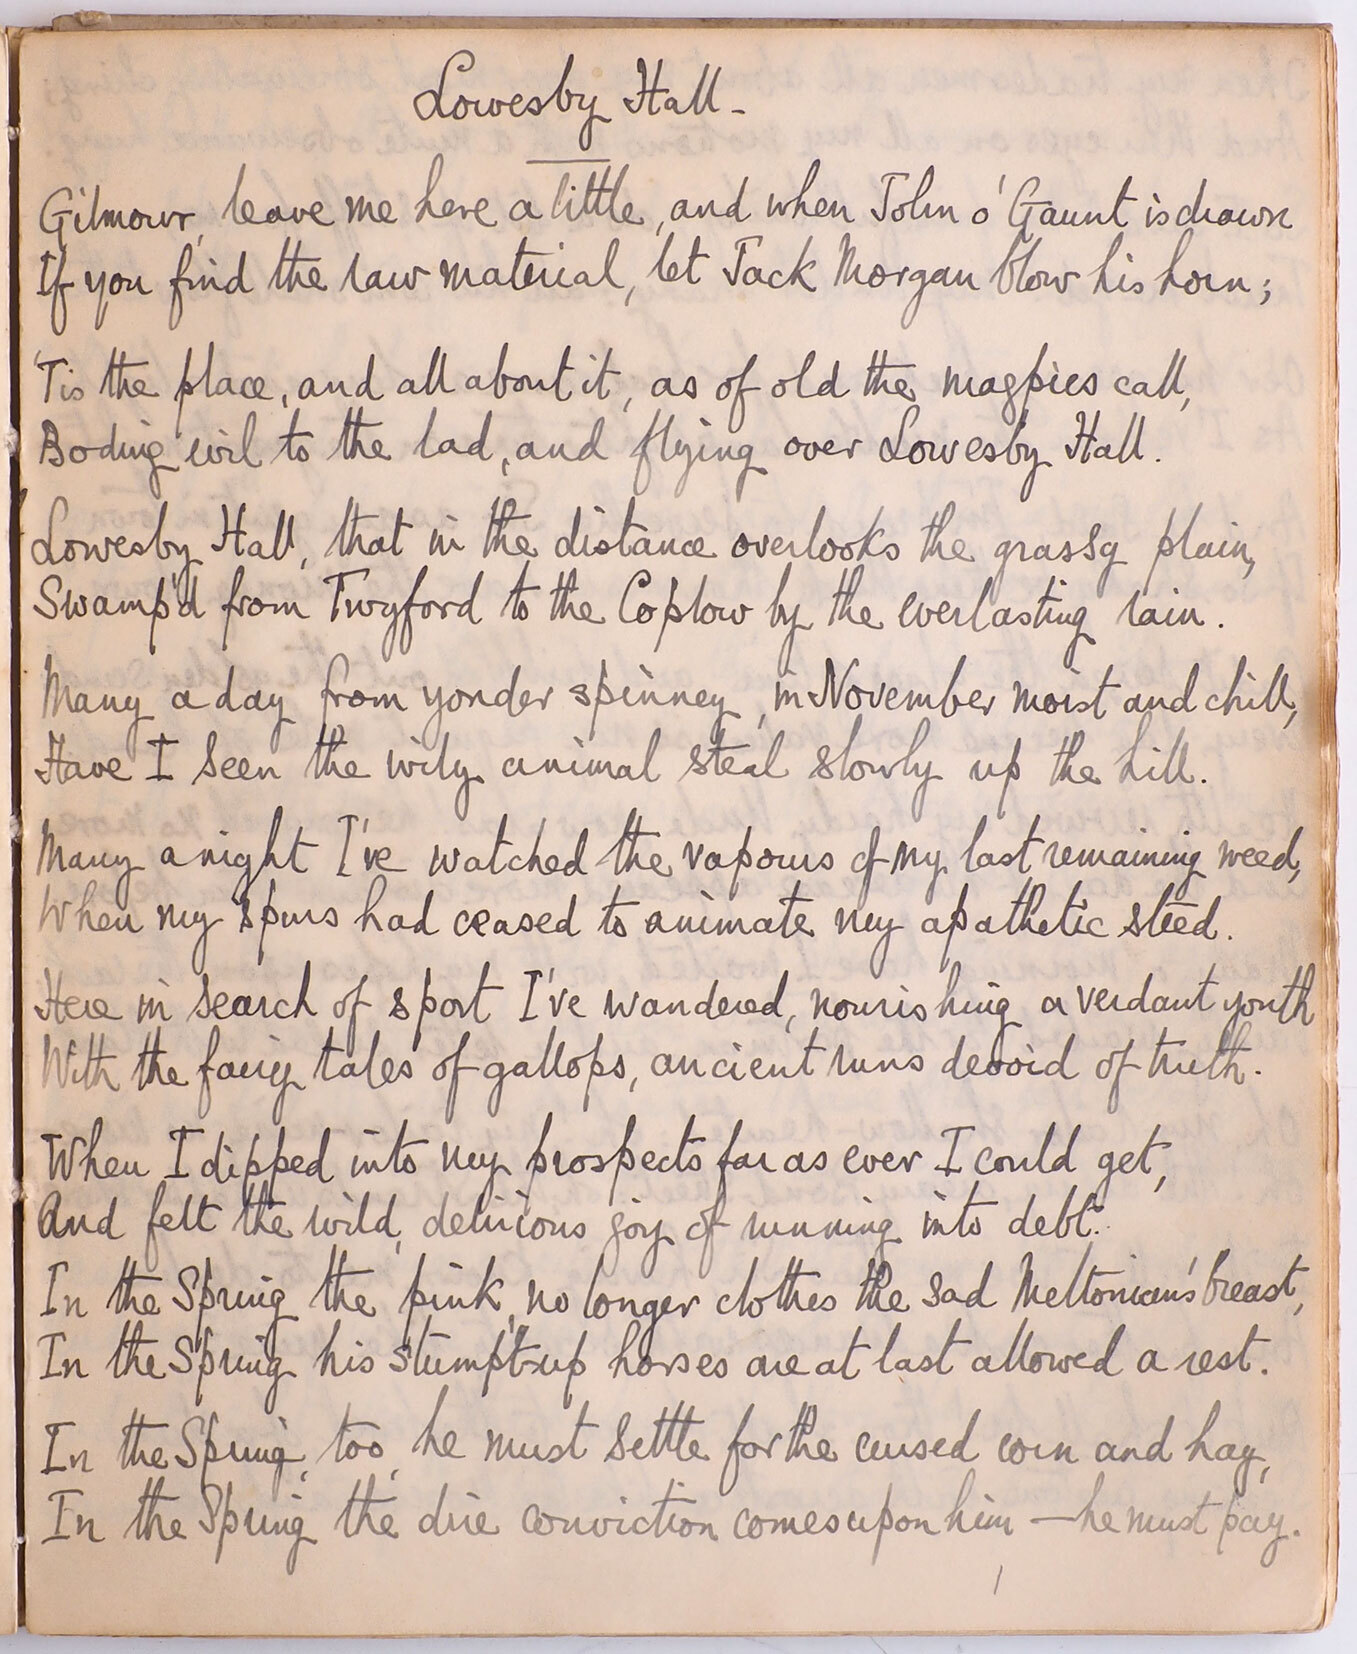 Lowesby Hall -
Gilmour, leave me here a little, and when John o' Gaunt is drawn
If you find the raw material, let Jack Morgan blow his horn;
'Tis the place, and all about it, as of old the magpies call,
Boding evil to the lad, and flying over Lowesby Hall.
Lowesby Hall, that in the distance overlooks the grassy plain,
Swamp'd from Twyford to the Coplow by the everlasting rain.
Many a day from yonder spinney, in November moist and chill,
Have I seen the wily animal steal slowly up the hill.
Many a night I've watched the vapours of my last remaining weed,
When my spurs had ceased to animate my apathetic steed.
Here in search of sport I've wandered, nourishing a verdant youth
With the fairy tales of gallops, ancient runs devoid of truth.
When I dipped into my prospects far as ever I could get,
And felt the wild, delirious joy of running into debt.
In the Spring the pink no longer clothes the sad Meltonian's breast,
In the Spring his stumpt-up horses are at last allowed a rest.
In the Spring, too, he must settle for the cursed corn and hay,
In the Spring the dire conviction comes upon him — he must pay.